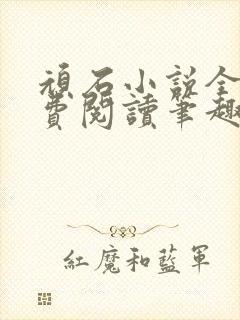 頑石小說全
費閱讀筆趣
紅魔和藍軍